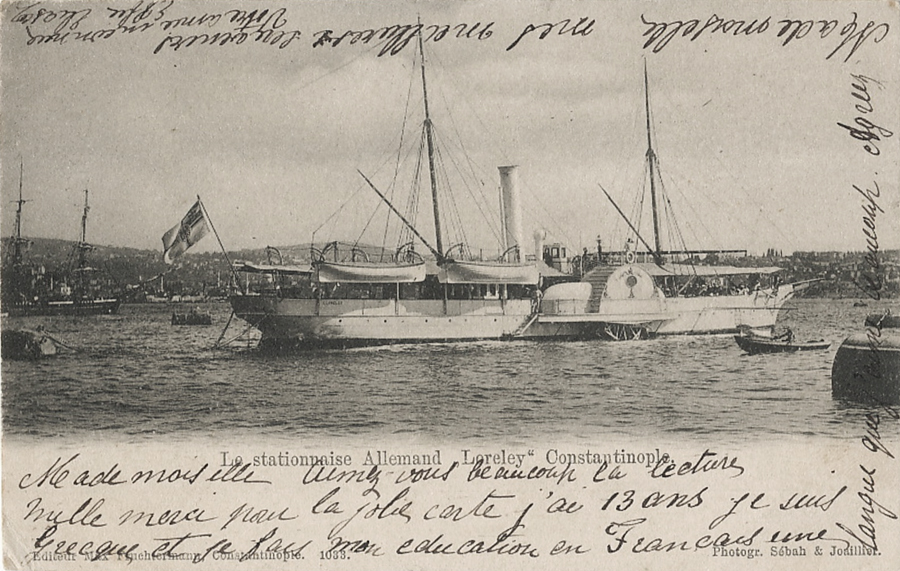 Le stationnaise Allemand „Loreley“ Constantinople.
Mademoiselle Aimez-vous beaucoup la lecture
Mille merci pour la jolie carte j'ai 13 ans je suis
Grecque et je fais mon education en Français une
langue que j'aime beaucoup. Agreez
Mademoiselle mes meilleures
Votre amie inconnue
Editeur Max Fruchtermann, Constantinople. 1033.
Photogr. Sébah & Joaillier.